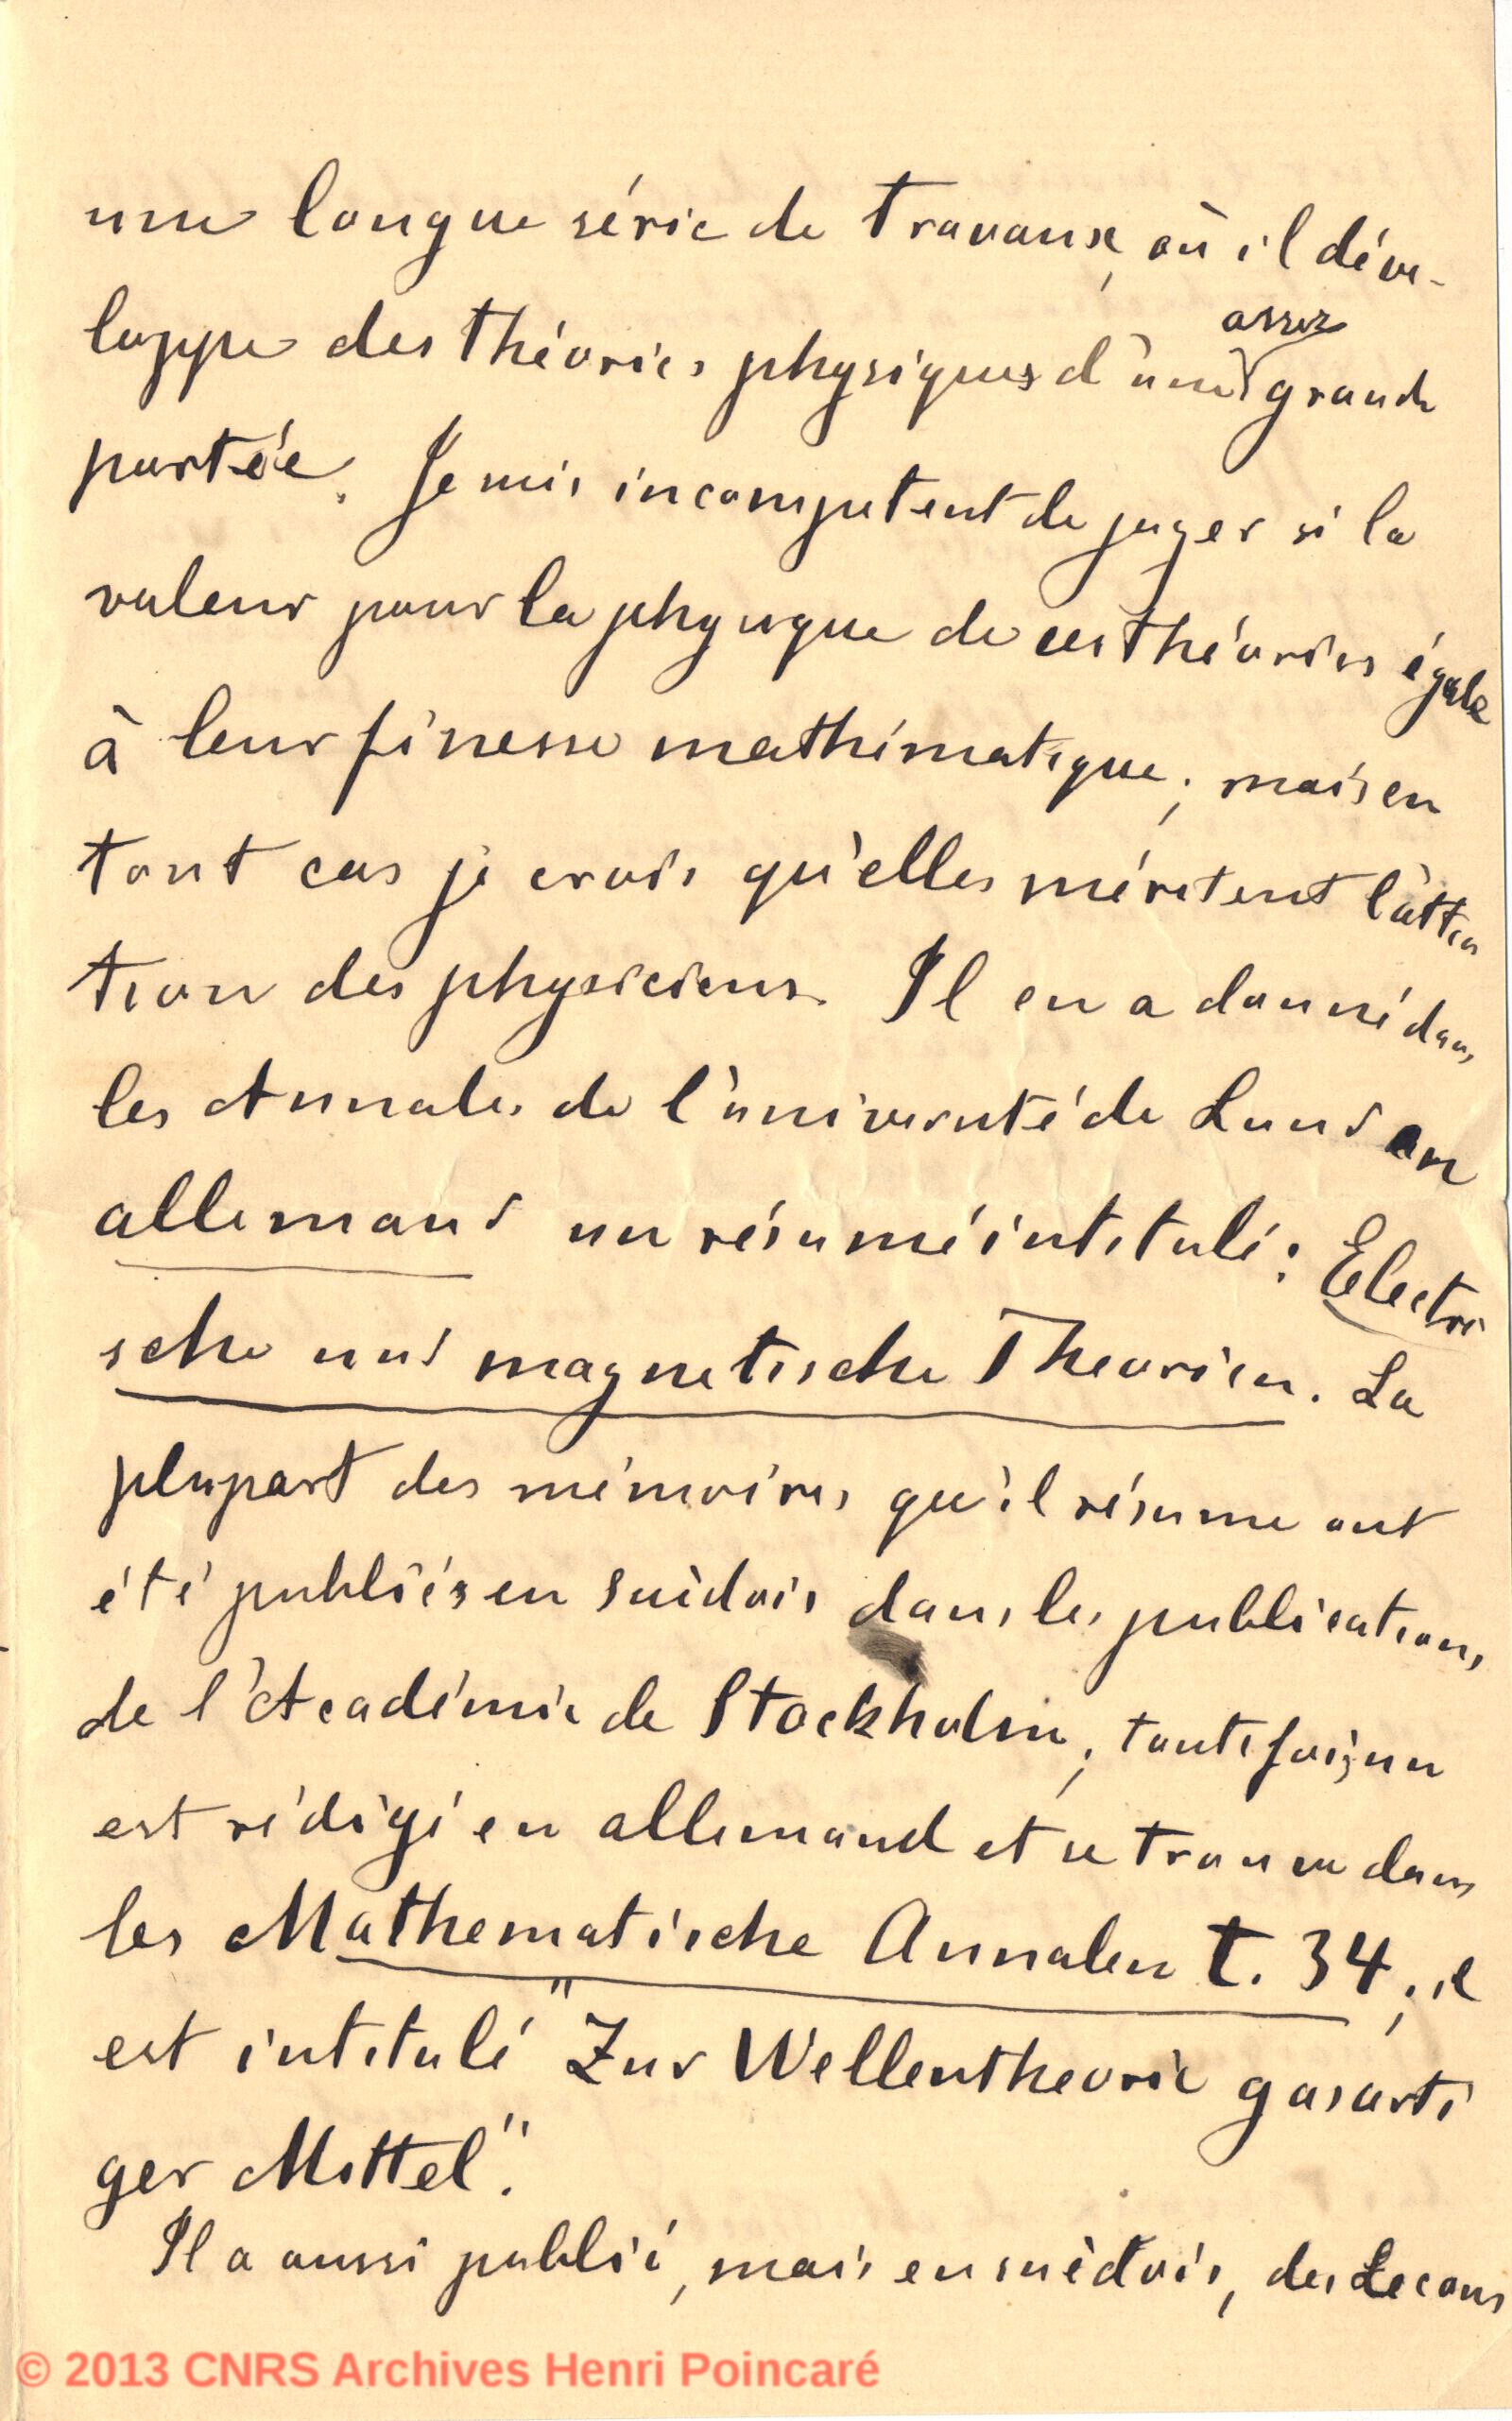 une longue série de travaux, où il déve-
assez
loppe des théories physiques d'une grande
portée. Je suis incompetent de juger si la
valeur pour la physique de ces théories égale
à leur finesse mathématique; mais en
tout cas je crois qu'elles méritent l'atten
tion des physiciens. Il en a donné dans
les Annales de l'université de Lund en
allemand un résumé intitulé: Electri
sche und magnetische Theorien. La
plupart des mémoires qu'il résume ont
été publiés en suédois dans les publications
de l'Académie de Stockholm; toutefois un
est rédigé en allemand et se trouve dans
les Mathematische Annalen t. 34; il
est intitulé "Zur Wellentheorie gasarti
ger Mittel".
Il a aussi publié, mais en suèdois, des Lecons
© 2013 CNRS Archives Henri Poincaré